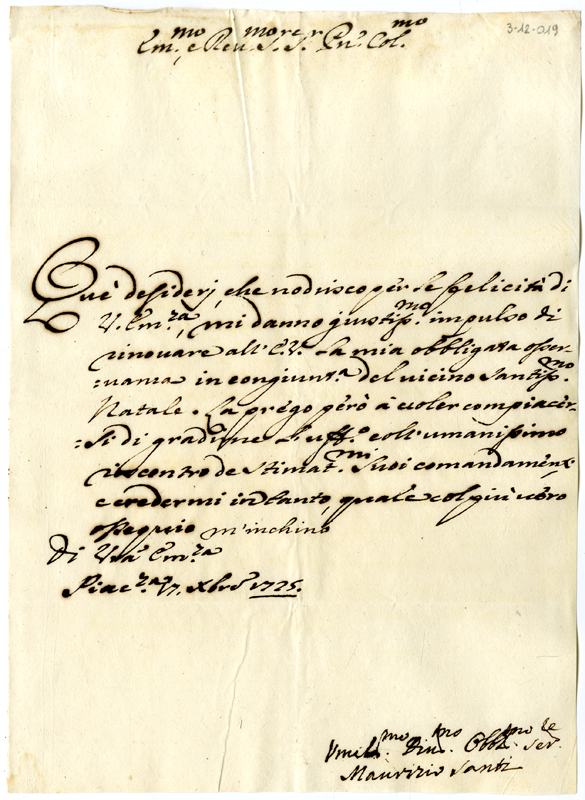 3-12-019
Em.mo e Reu.mo S.re S.r Pn.e Col.mo
Què desiderj, che nodrisco per le felicità di
V. Em.za, mi danno giustiss.mo impulso di
rinouare all'E.V. la mia obbligata osser-
=uanza in congiunt.a del vicino Santiss.mo
Natale. La prego però à uoler compiacer-
=si di gradirne l'uff.o coll'umanissimo
incontro de stimat.mi Suoi comandamenti
e credermi intanto, quale col più uero
ossequio m'inchino
Di Vrã Em.za
Piac.za 17. Xbrẽ 1725.
Umil.mo Diu.mo Obb.mo Ser.re
Maurizio Santi